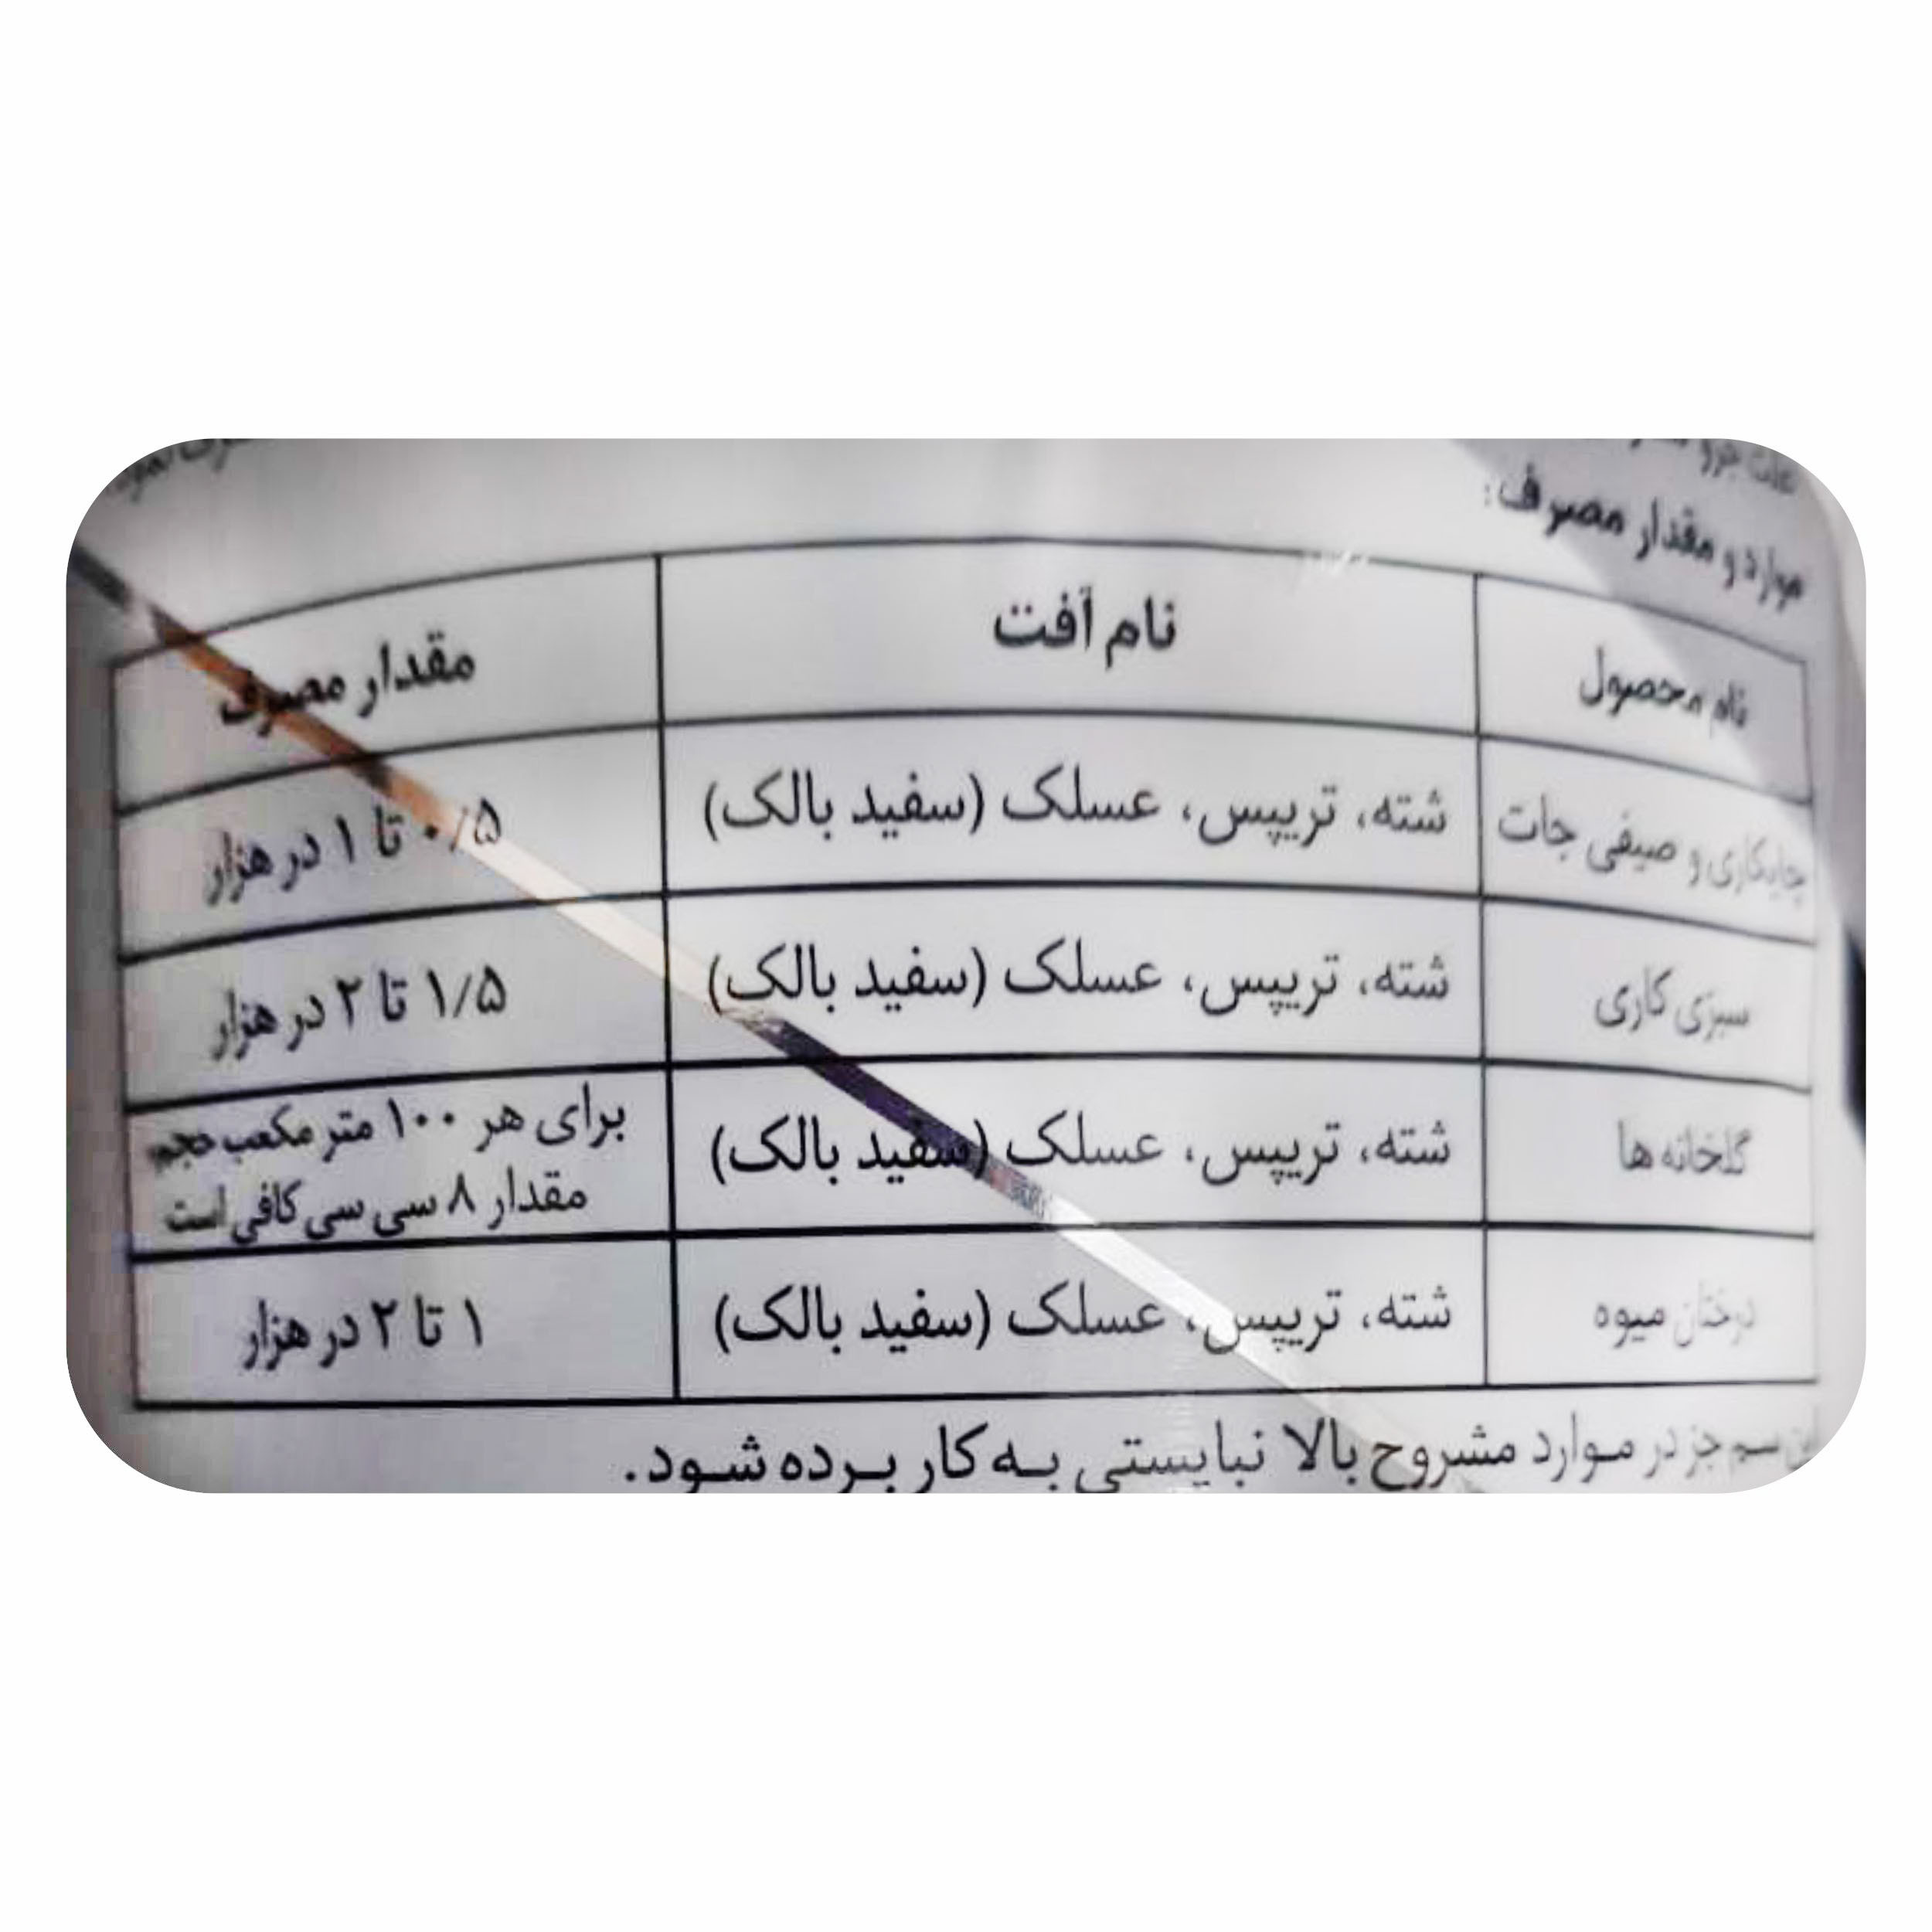 موارد و مقدار مصرف:
نام محصول	نام آفت	مقدار مصرف
چایکاری و صیفی جات	شته، تریپس، عسلک (سفید بالک)	۰/۵ تا ۱ در هزار
سبزی کاری	شته، تریپس، عسلک (سفید بالک)	۱/۵ تا ۲ در هزار
گلخانه ها	شته، تریپس، عسلک (سفید بالک)	برای هر ۱۰۰ متر مکعب حجم
مقدار ۸ سی سی کافی است
درختان میوه	شته، تریپس، عسلک (سفید بالک)	۱ تا ۲ در هزار
سم جز در موارد مشروح بالا نبایستی به کار برده شود.